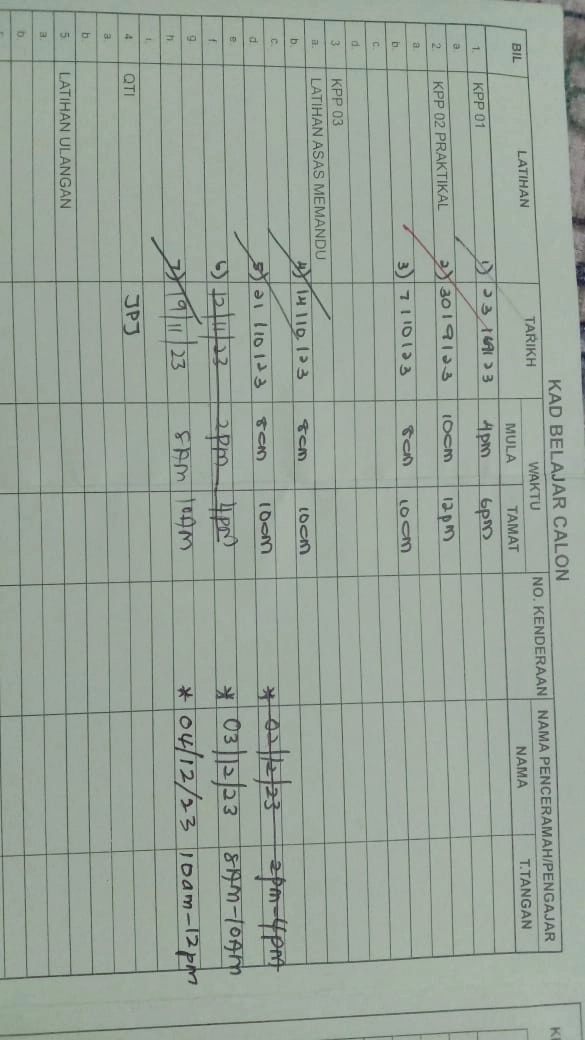 KAD BELAJAR CALON
BIL LATIHAN TARIKH WAKTU NO. KENDERAAN NAMA PENCERAMAH/PENGAJAR
MULA TAMAT NAMA T.TANGAN
1. KPP 01 1) 23 / 9 / 23 4pm 6pm
a
2 KPP 02 PRAKTIKAL 2) 30 / 9 / 23 10am 12pm
a.
b 3) 7 / 10 / 23 8am 10am
c.
d.
3 KPP 03
a. LATIHAN ASAS MEMANDU
b. 4) 14 / 10 / 23 8am 10am
c. * 02/12/23 2pm-4pm
d 5) 21 / 10 / 23 8am 10am
e * 03/12/23 8AM-10AM
f 6) 12/11/23 2pm 4pm
g * 04/12/23 10am-12pm
h 7) 19/11/23 8AM 10AM
i.
4 QTI JPJ
a
b
5 LATIHAN ULANGAN
a
b